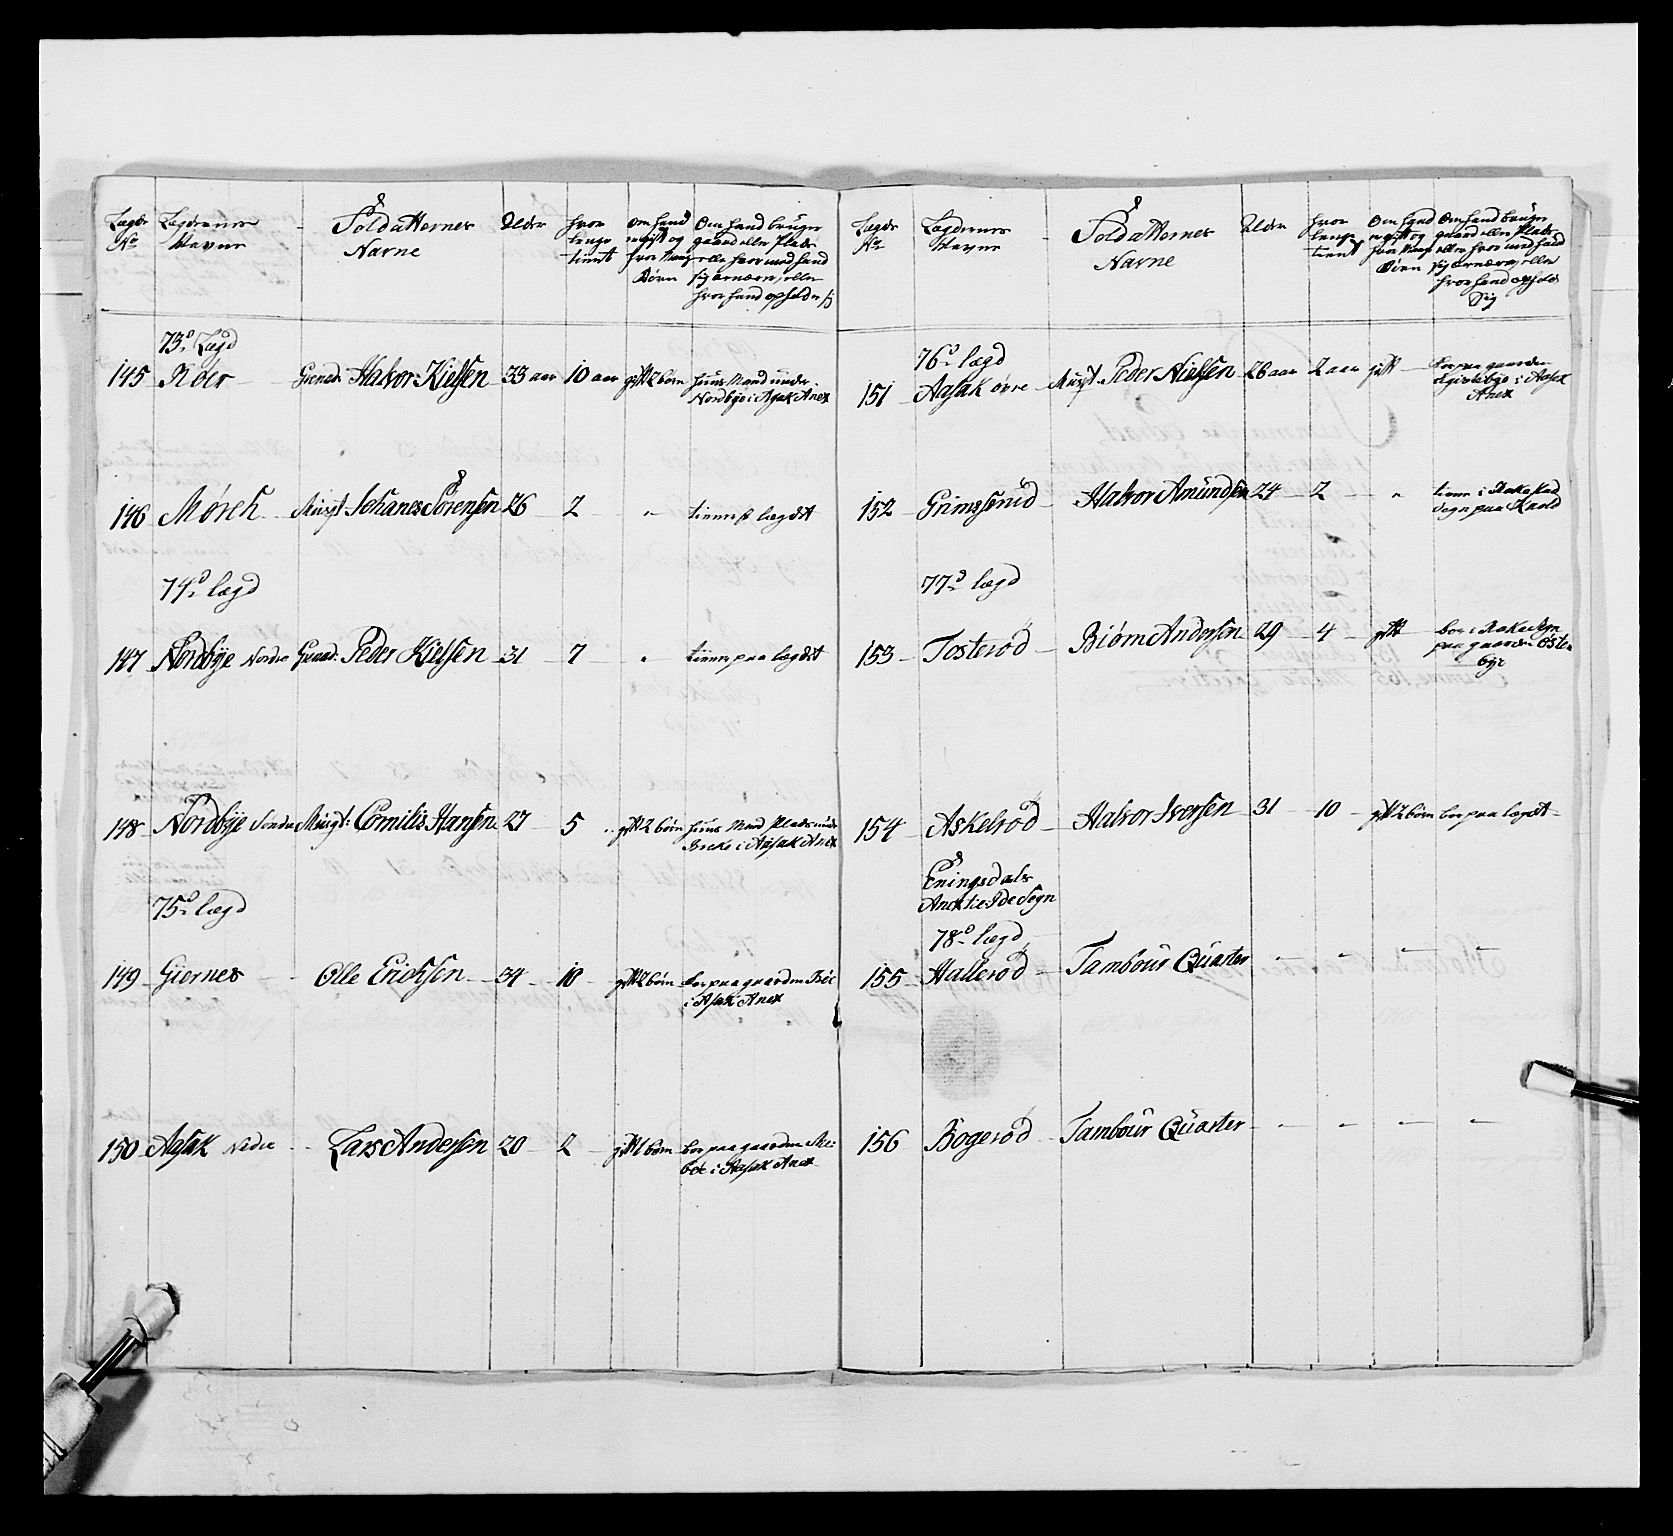 Lægds No
Lægdernes Navne
Soldatternes Navne
Alder
hvor lenge tient
om hand er gift og hvor mange Børn
Om hand bruger gaard eller Plads eller hvor med hand sig ernærer, eller hvor hand opholder sig
73de Lægd
145 Röer Grenad: Halvor Kielsen 33 aar 10 aar gift 2 børn huus Mand under Nordbye i Asak Anex
146 Mørch Musqt Johanes Sørensen 26 2 " tiener i lægdet
74de lægd
147 Nordbye Nordre Grenad: Peder Kielsen 31 7 " tiener paa lægdet
148 Nordbye Søndre Musqt: Cornilis Hansen 27 5 gift 2 børn huus Mand Plads under Breke i Aasak Anex
75de lægd
149 Giernes Olle Erichsen 34 10 gift 2 børn boer paa gaarden Böe i Asak Anex
150 Aasak Nedre Lars Andersen 20 2 gift 1 børn boer paa gaarden i Aasak Anex
Lægds No
Lægdernes Navne
Soldatternes Navne
Alder
hvor lenge tient
Om hand er gift og hvor mange Børn
Om hand bruger gaard eller Plads, eller hvor med hand sig ernærer, eller hvor hand opholder Sig
76de lægd
151 Aasak øvre Musqt Peder Nielsen 26 aar 2 aar gift boer paa gaarden i Aasak Anex
152 Grimsrud Halvor Amundsen 24 2 " tiener i Rakestad Sogn paa
77de lægd
153 Tosterød Biørn Andersen 29 4 gift boer i Rakestad Sogn paa gaarden Østenbye
154 Askelrød Halvor Iversen 31 10 gift 2 børn boer paa lægdet
Eningsdals Anex til Ide Sogn
78de lægd
155 Hallerød Tambour Quarter - - - -
156 Bogerød Tambour Quarter - - - -